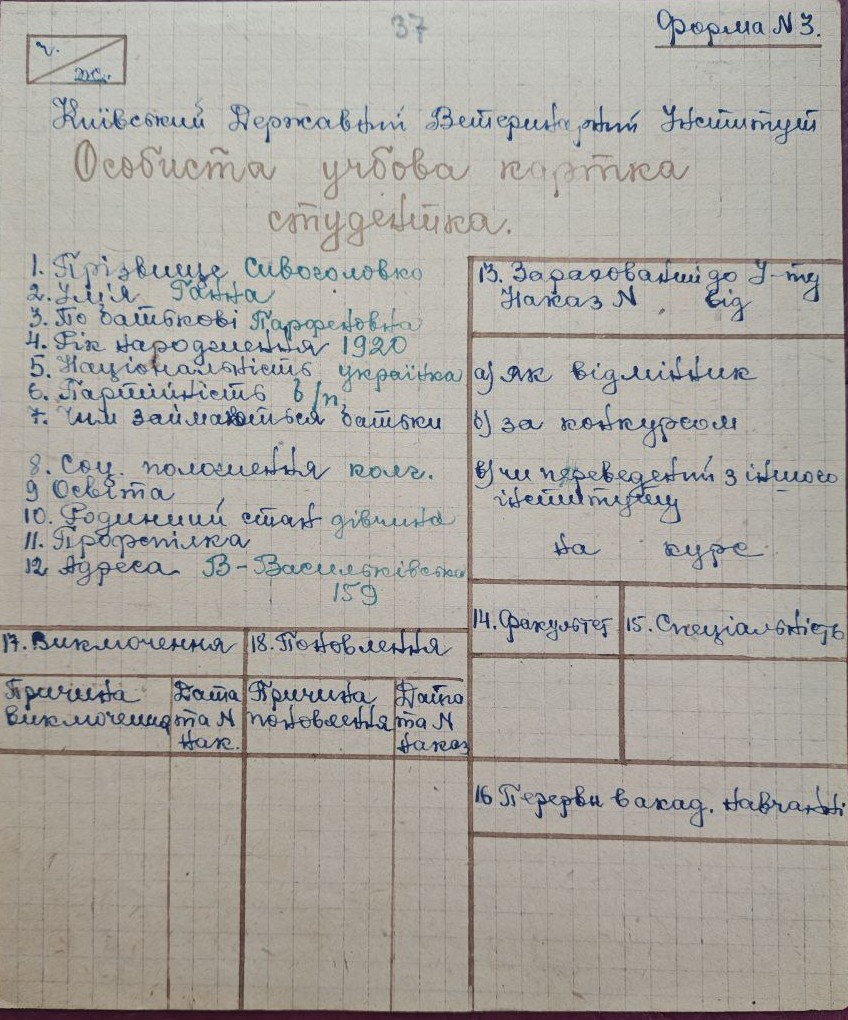 37
Форма N 3.
ч.
ж.
Київський Державний Ветеринарний Інститут
Особиста учбова картка
студентка.
1. Прізвище Сивоголовко
2. Ім'я Ганна
3. По батькові Парфеновна
4. Рік народження 1920
5. Національність українка
6. Партійність б/п.
7. Чим займаються батьки
8. Соц. положення колг.
9 Освіта
10. Родинний стан дівчина
11. Профспілка
12 Адреса В-Васильківська
159
13. Зарахований до І-ту
Наказ N від
а) як відмінник
б) за конкурсом
в) чи переведений з іншого
інституту
на курс
14. Факультет
15. Спеціальність
16 Перерви в акад. навчанні
17. Виключення
18. Поновлення
Причина
виключення
Дата
та N
нак.
Причина
поновлення
Дата
та N
наказ